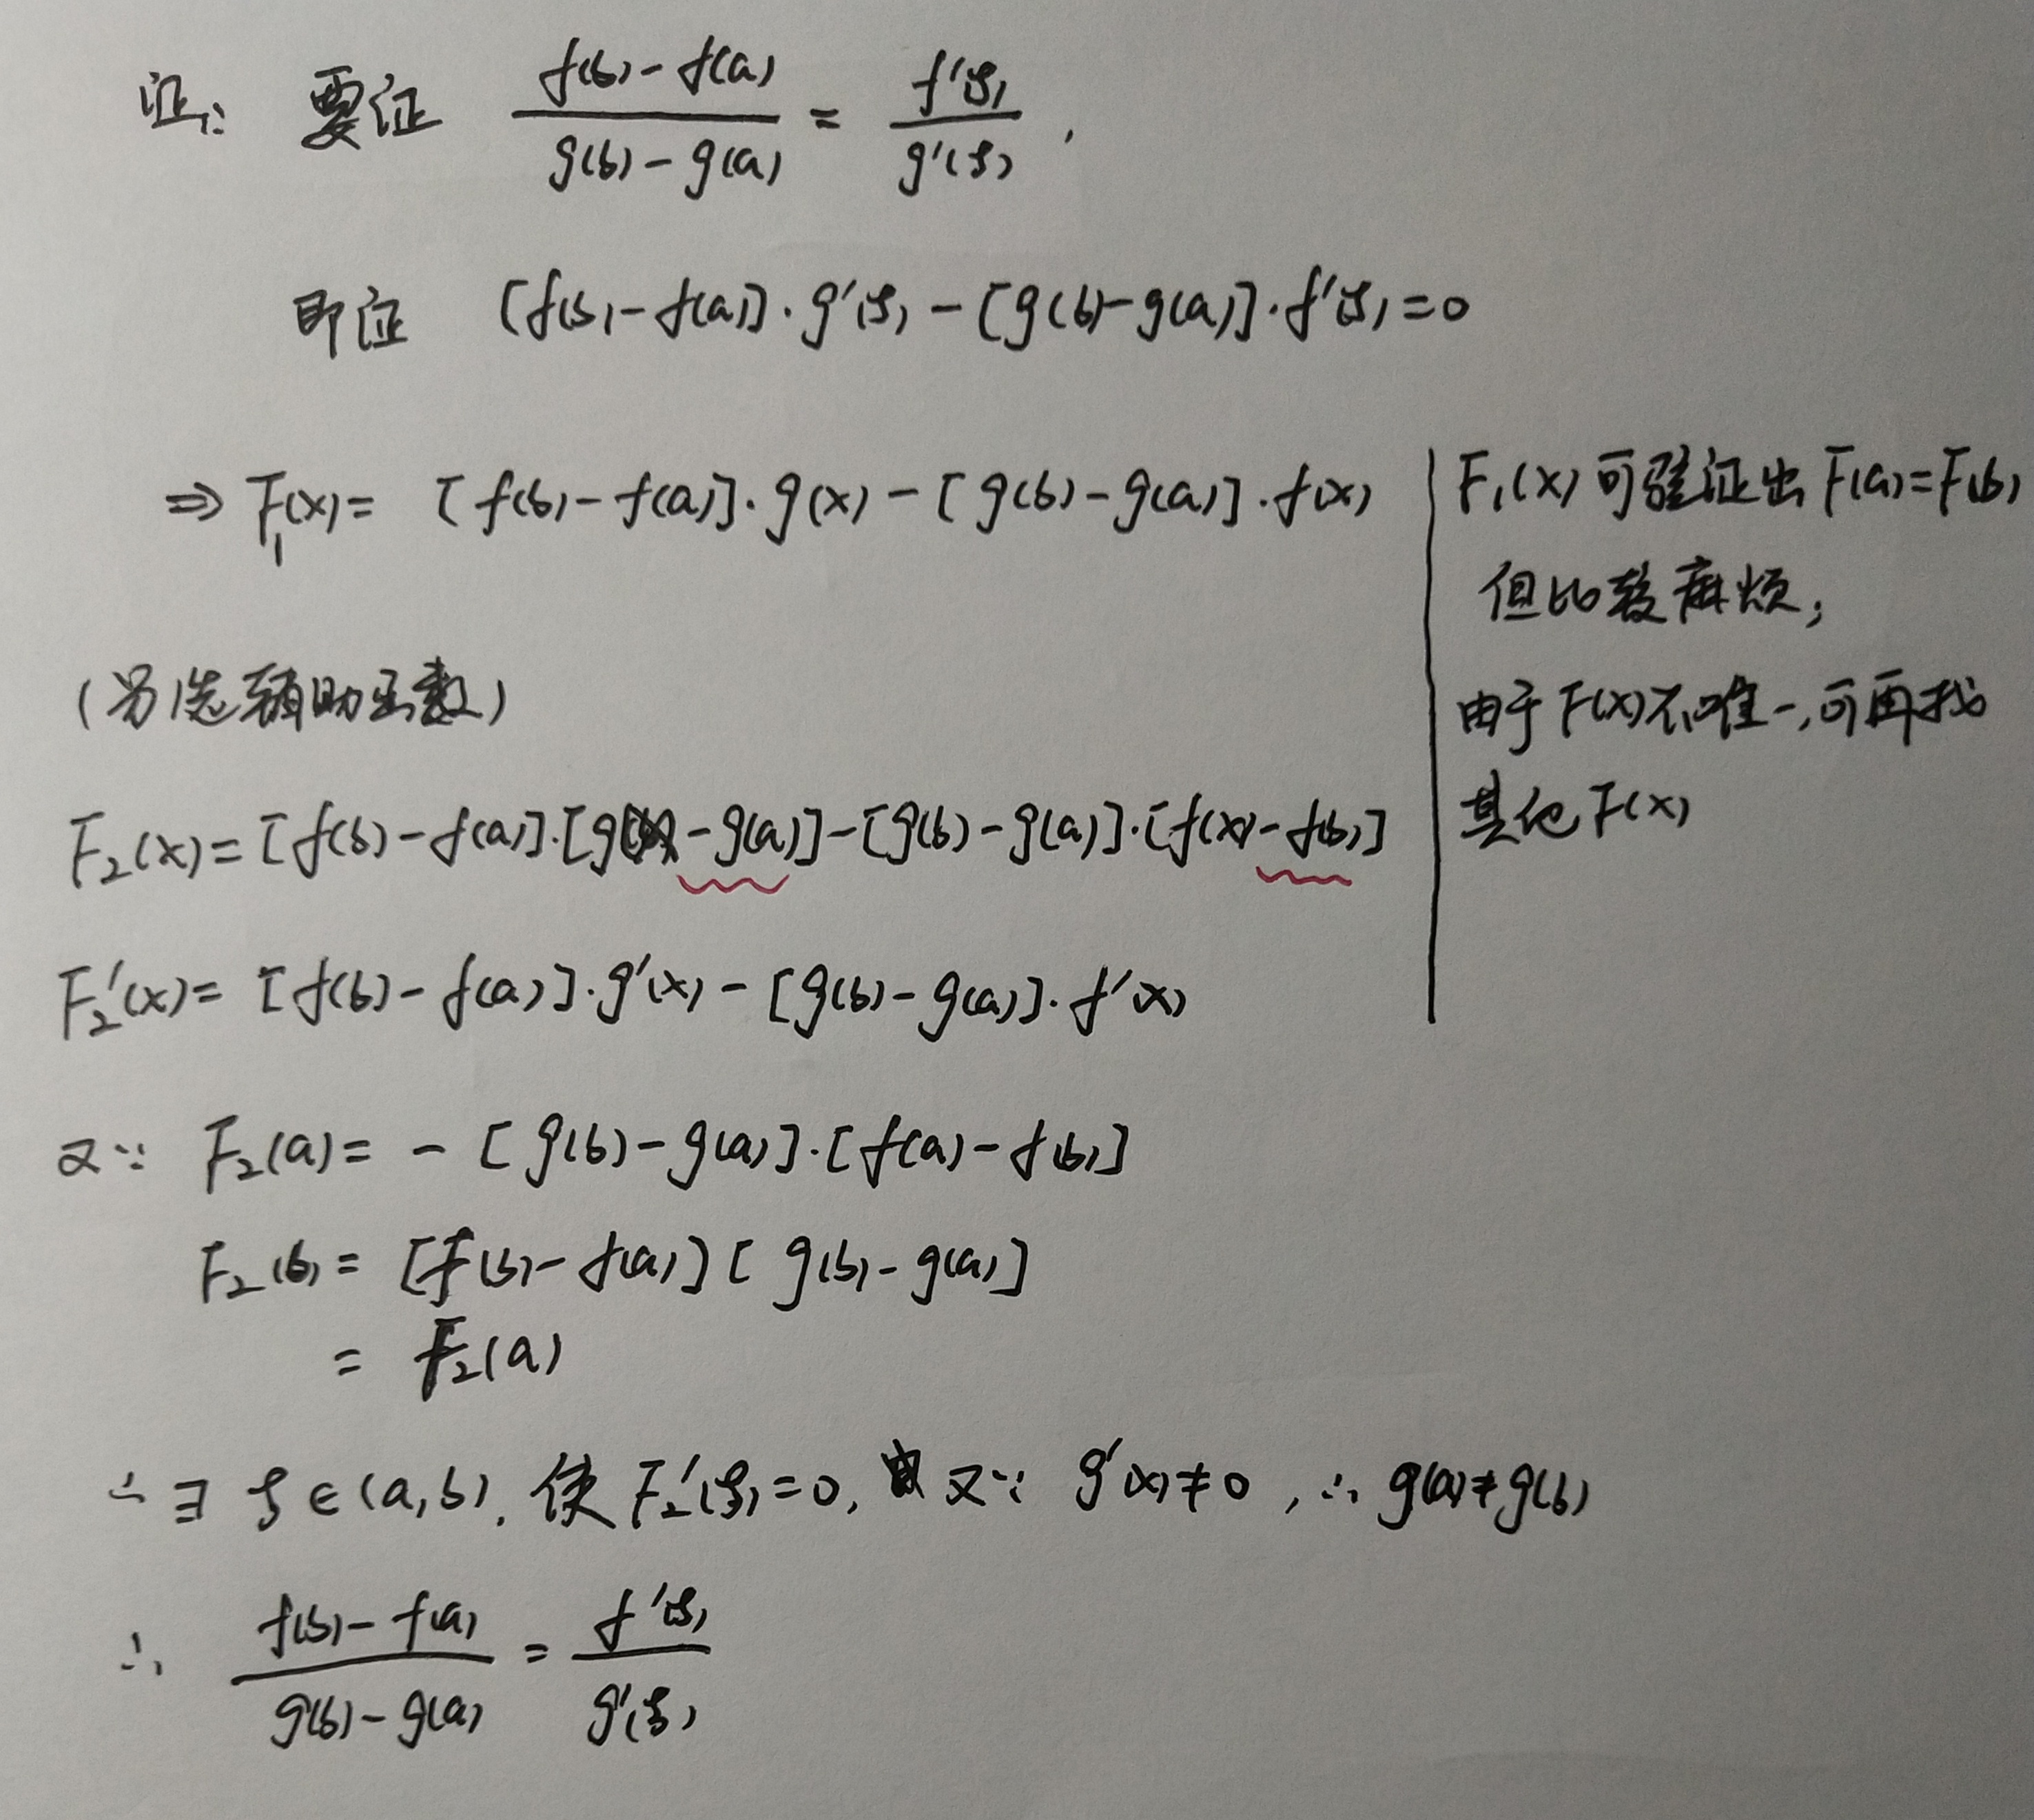 证: 要证 (f(b)-f(a))/(g(b)-g(a)) = f'(ξ)/g'(ξ),
即证 [f(b)-f(a)]·g'(ξ)-[g(b)-g(a)]·f'(ξ)=0
⇒ F₁(x)= [f(b)-f(a)]·g(x)-[g(b)-g(a)]·f(x)
F₁(x)可验证出F(a)=F(b)
但比较麻烦;
由于F(x)不唯一,可再找
其他F(x)
(另选辅助函数)
F₂(x)=[f(b)-f(a)]·[g(x)-g(a)]-[g(b)-g(a)]·[f(x)-f(b)]
F₂'(x)= [f(b)-f(a)]·g'(x)-[g(b)-g(a)]·f'(x)
又∵ F₂(a)= -[g(b)-g(a)]·[f(a)-f(b)]
F₂(b)= [f(b)-f(a)][g(b)-g(a)]
= F₂(a)
∴∃ ξ∈(a,b), 使F₂'(ξ)=0, 又∵ g'(x)≠0, ∴ g(a)≠g(b)
∴ (f(b)-f(a))/(g(b)-g(a)) = f'(ξ)/g'(ξ)